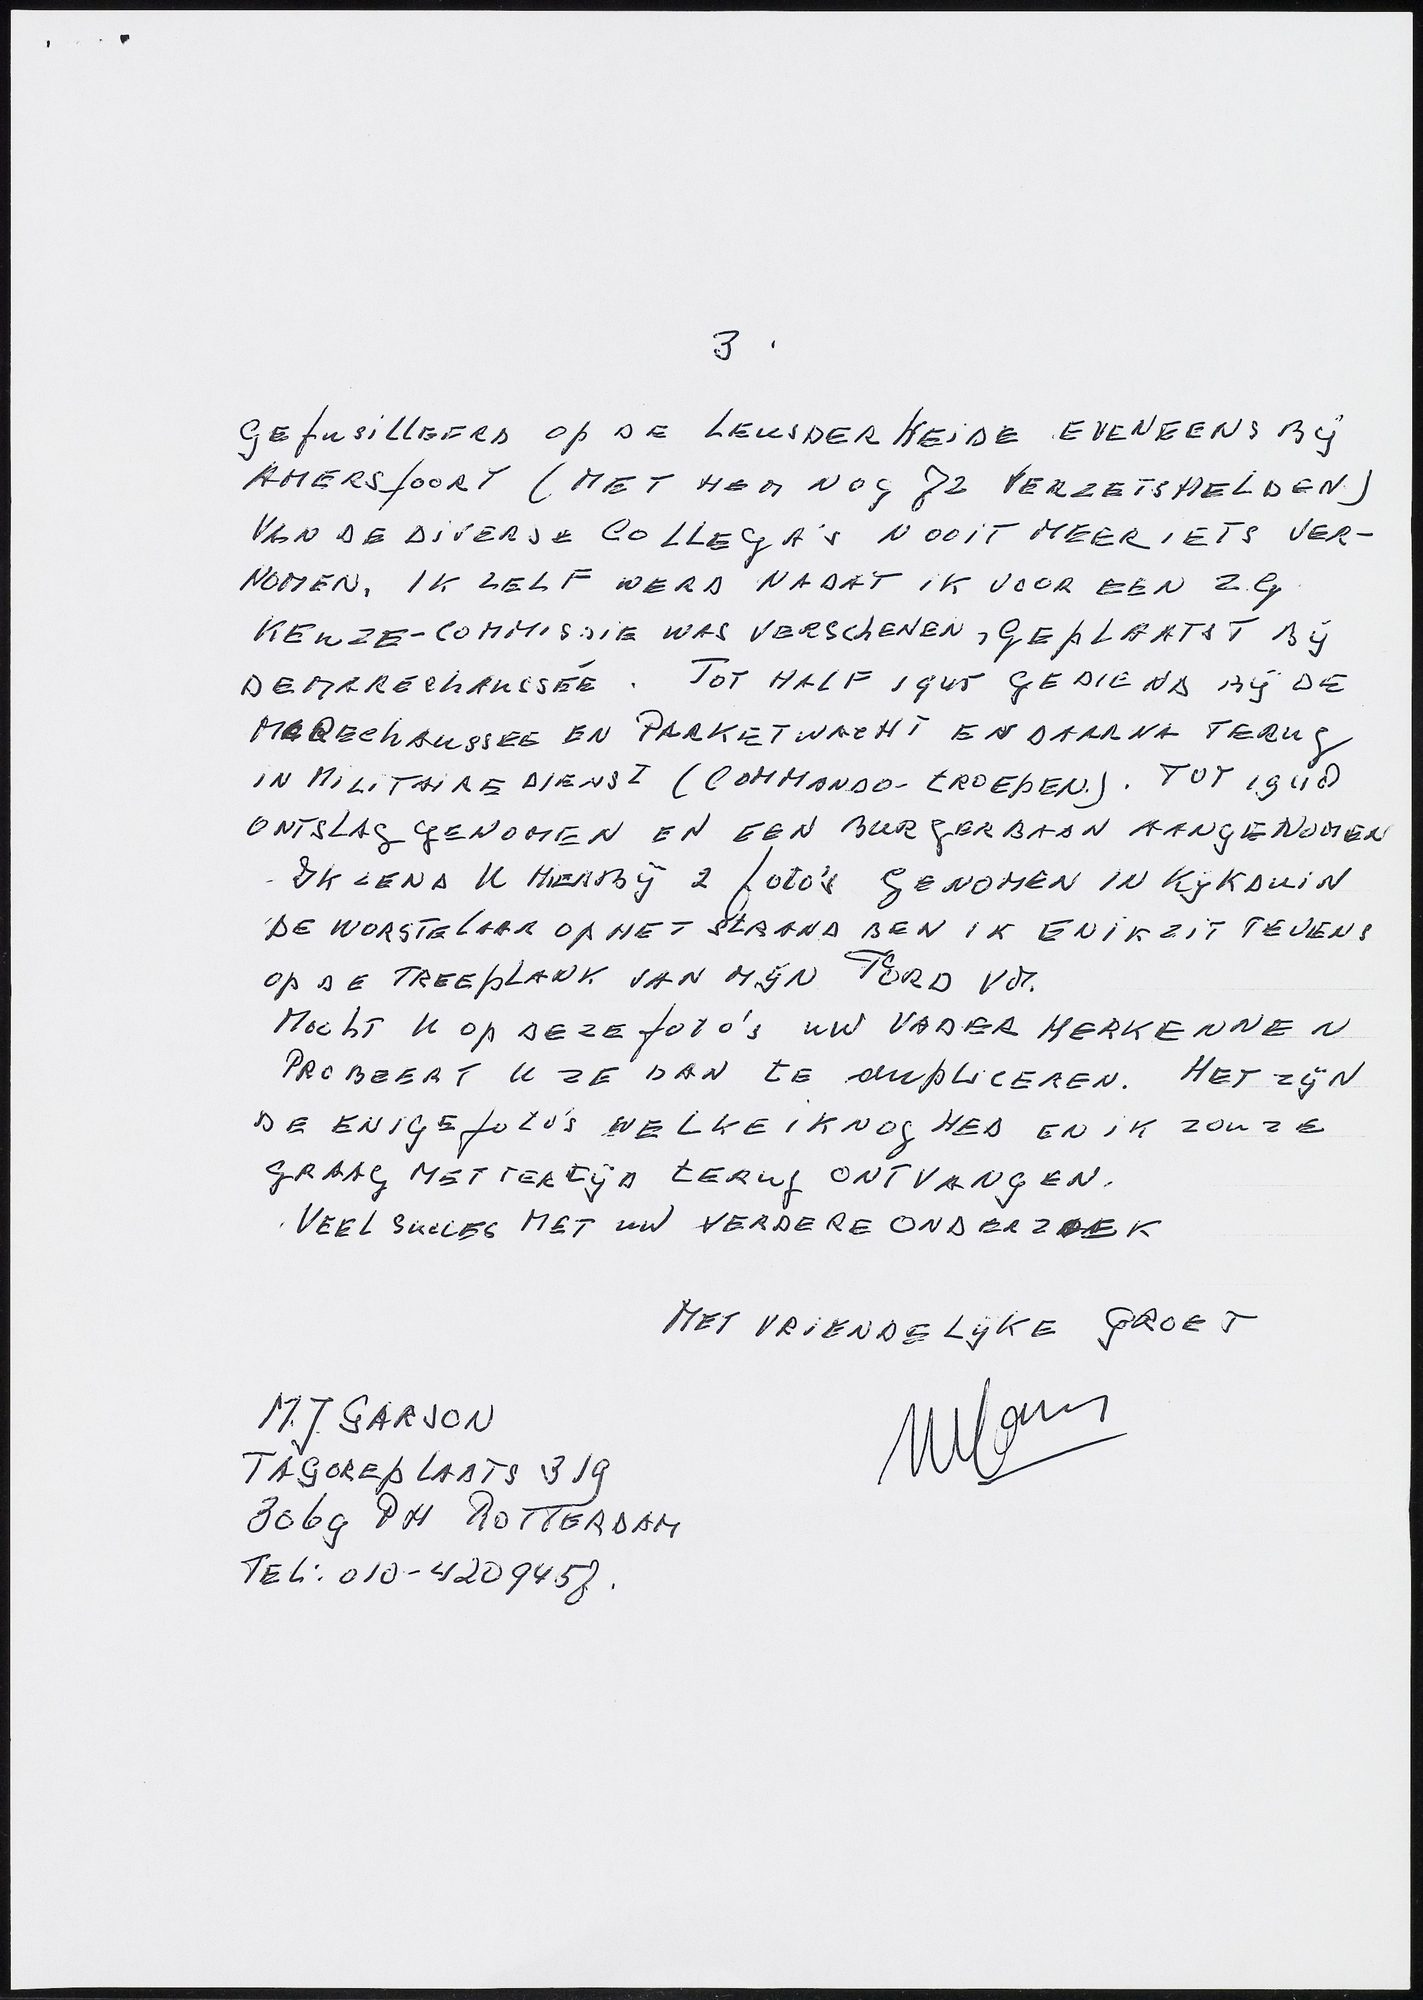 3.
GEfusilleerd op de LeusderHeide eveneens bij
Amersfoort (met hem nog 72 verzetshelden)
van de diverse collega's nooit meer iets ver-
nomen. Ik zelf werd nadat ik voor een z.g
keuze-commissie was verschenen, geplaatst bij
de Marechaussée. Tot half 1945 gediend bij de
Marechaussee en Parketwacht en daarna terug
in Militaire dienst (Commando-troepen). Tot 1948
ontslag genomen en een burgerbaan aangenomen
Ik zend U hierbij 2 foto's genomen in Kijkduin
De worstelaar op het strand ben ik en ik zit tevens
op de treeplank van mijn Ford V8.
Mocht U op deze foto's uw vader herkennen
Probeert U ze dan te dupliceren. Het zijn
de enige foto's welke ik nog heb en ik zou ze
graag mettertijd terug ontvangen.
Veel succes met uw verdere onderzoek
Met vriendelijke groet
M.J GARSON
Tagoreplaats 319
3069 PH Rotterdam
Tel: 010-4209457.